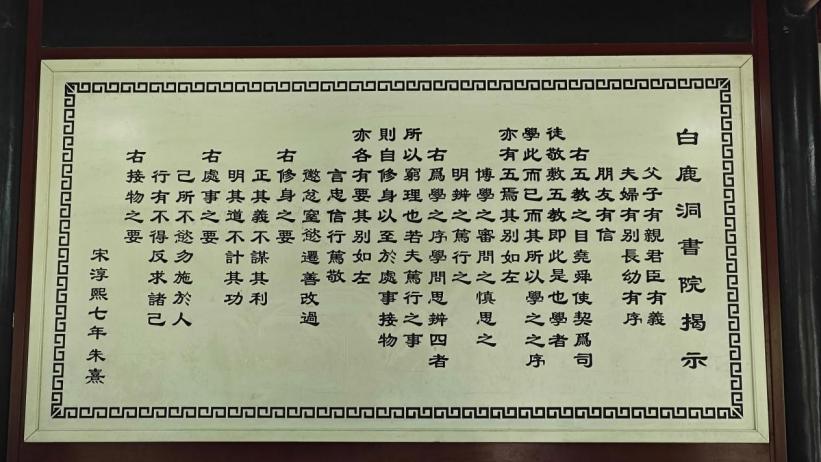 白鹿洞書院揭示
父子有親君臣有義
夫婦有别長幼有序
朋友有信
右五教之目堯舜使契爲司
徒敬敷五教即此是也學者
學此而已而其所以學之之序
亦有五焉其别如左
博學之審問之慎思之
明辨之篤行之
右爲學之序學問思辨四者
所以窮理也若夫篤行之事
則自修身以至於處事接物
亦各有要其别如左
言忠信行篤敬
懲忿窒慾遷善改過
右修身之要
正其義不謀其利
明其道不計其功
右處事之要
己所不慾勿施於人
行有不得反求諸己
右接物之要
宋淳熙七年朱熹